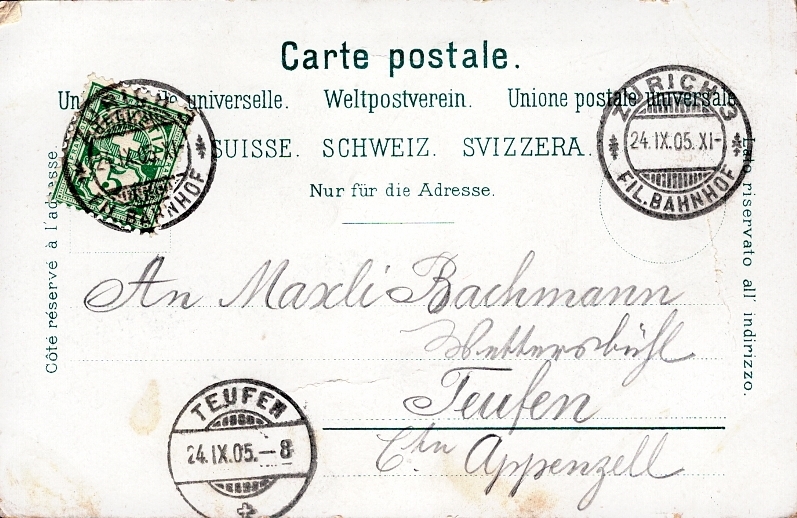 Carte postale.
Union postale universelle. Weltpostverein. Unione postale universale
SUISSE. SCHWEIZ. SVIZZERA.
Nur für die Adresse.
Côté réservé à l'adresse.
Lato riservato all' indirizzo.
ZÜRICH 3
24.IX.05. XI-
FIL. BAHNHOF
ZÜRICH 3
24.IX.05. XI-
FIL. BAHNHOF
5
An Maxli Bachmann
Wettersbühl
Teufen
Ctn Appenzell
TEUFEN
24.IX.05.-8